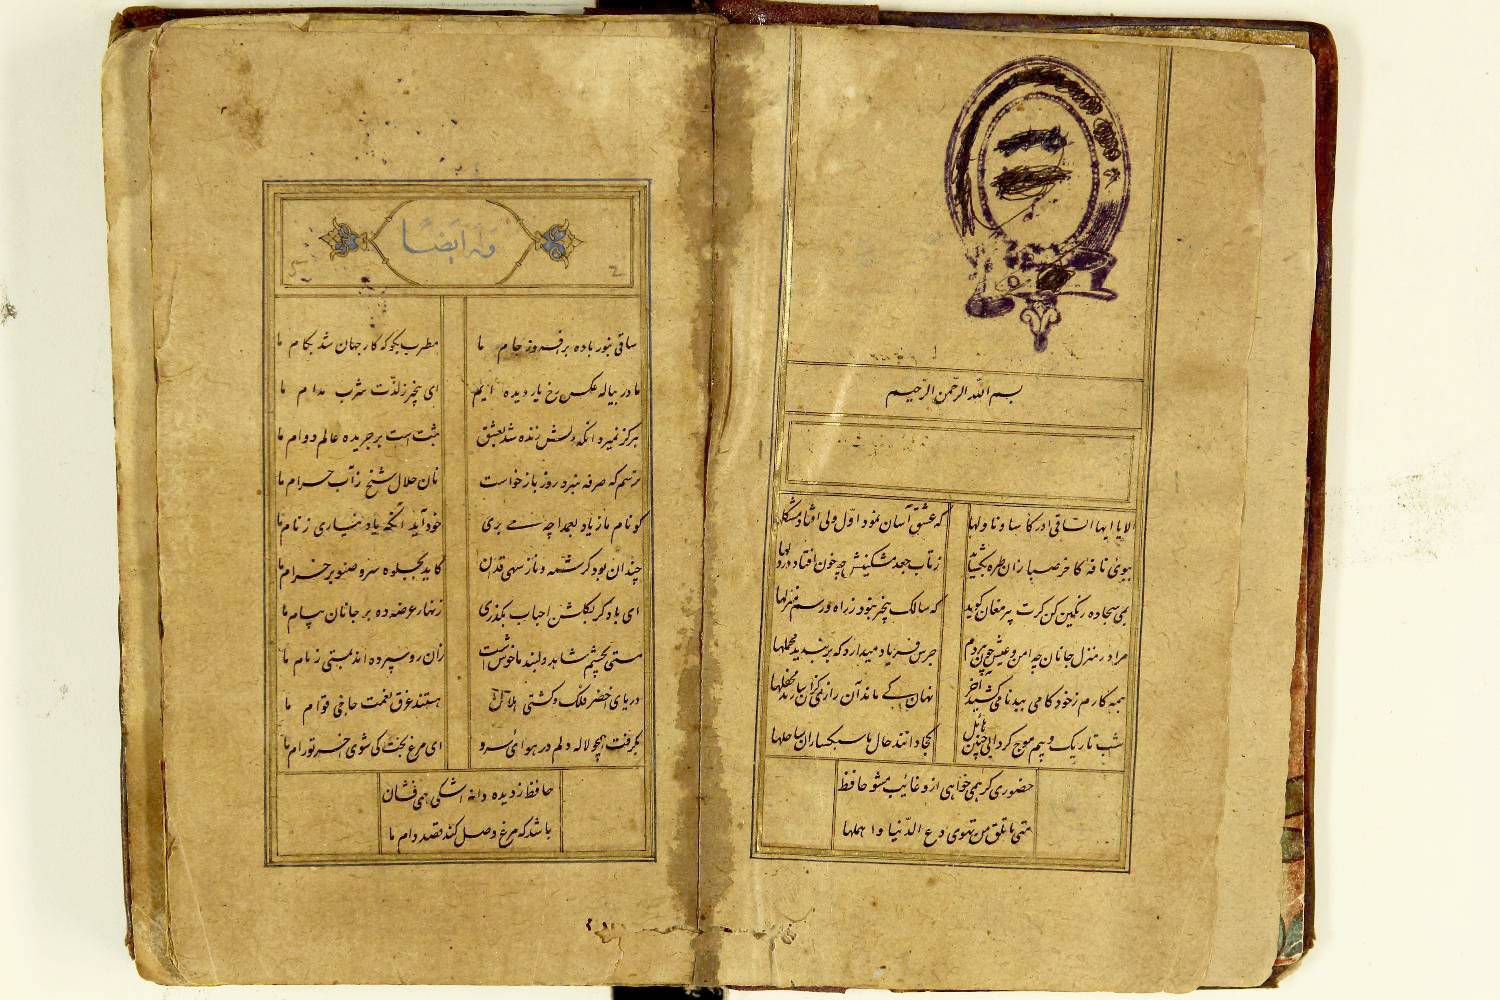 بسم الله الرحمن الرحیم
الا یا ایها الساقی ادر کاسا و ناولها که عشق آسان نمود اول ولی افتاد مشکلها
ببوی نافهٔ کاخر صبا زان طره بگشاید ز تاب جعد مشکینش چه خون افتاد در دلها
بمی سجاده رنگین کن گرت پیر مغان گوید که سالک بیخبر نبود ز راه و رسم منزلها
مرا در منزل جانان چه امن و عیش چون هردم جرس فریاد میدارد که بربندید محملها
همه کارم ز خود کامی ببدنامی کشید آخر نهان کی ماند آن رازی کزان سازند محفلها
شب تاریک و بیم موج گردابی چنین هایل کجا دانند حال ما سبکساران ساحلها
حضوری گر همی خواهی ازو غایب مشو حافظ
متی ما تلق من تهوی دع الدنیا و اهملها
وله ایضاً
ساقی بنور باده برافروز جام ما مطرب بگو که کار جهان شد بکام ما
ما در پیاله عکس رخ یار دیده ایم ای بیخبر ز لذت شرب مدام ما
هرگز نمیرد آنکه دلش زنده شد بعشق ثبت است بر جریده عالم دوام ما
ترسم که صرفه نبرد روز بازخواست نان حلال شیخ ز آب حرام ما
گو نام ما ز یاد بعمدا چه می بری خود آید آنکه یاد نیاری ز نام ما
چندان بود کرشمه و ناز سهی قدان کاید بجلوه سرو صنوبر خرام ما
ای باد گر بگلشن احباب بگذری زنهار عرضه ده بر جانان پیام ما
مستی بچشم شاهد دلبند ما خوش است زان رو سپرده اند بمستی زمام ما
دریای اخضر فلک و کشتی هلال هستند غرق نعمت حاجی قوام ما
بگرفت همچو لاله دلم در هوای سرو ای مرغ بخت کی شوی آخر تو رام ما
حافظ ز دیده دانه اشکی همی فشان
باشد که مرغ وصل کند قصد دام ما